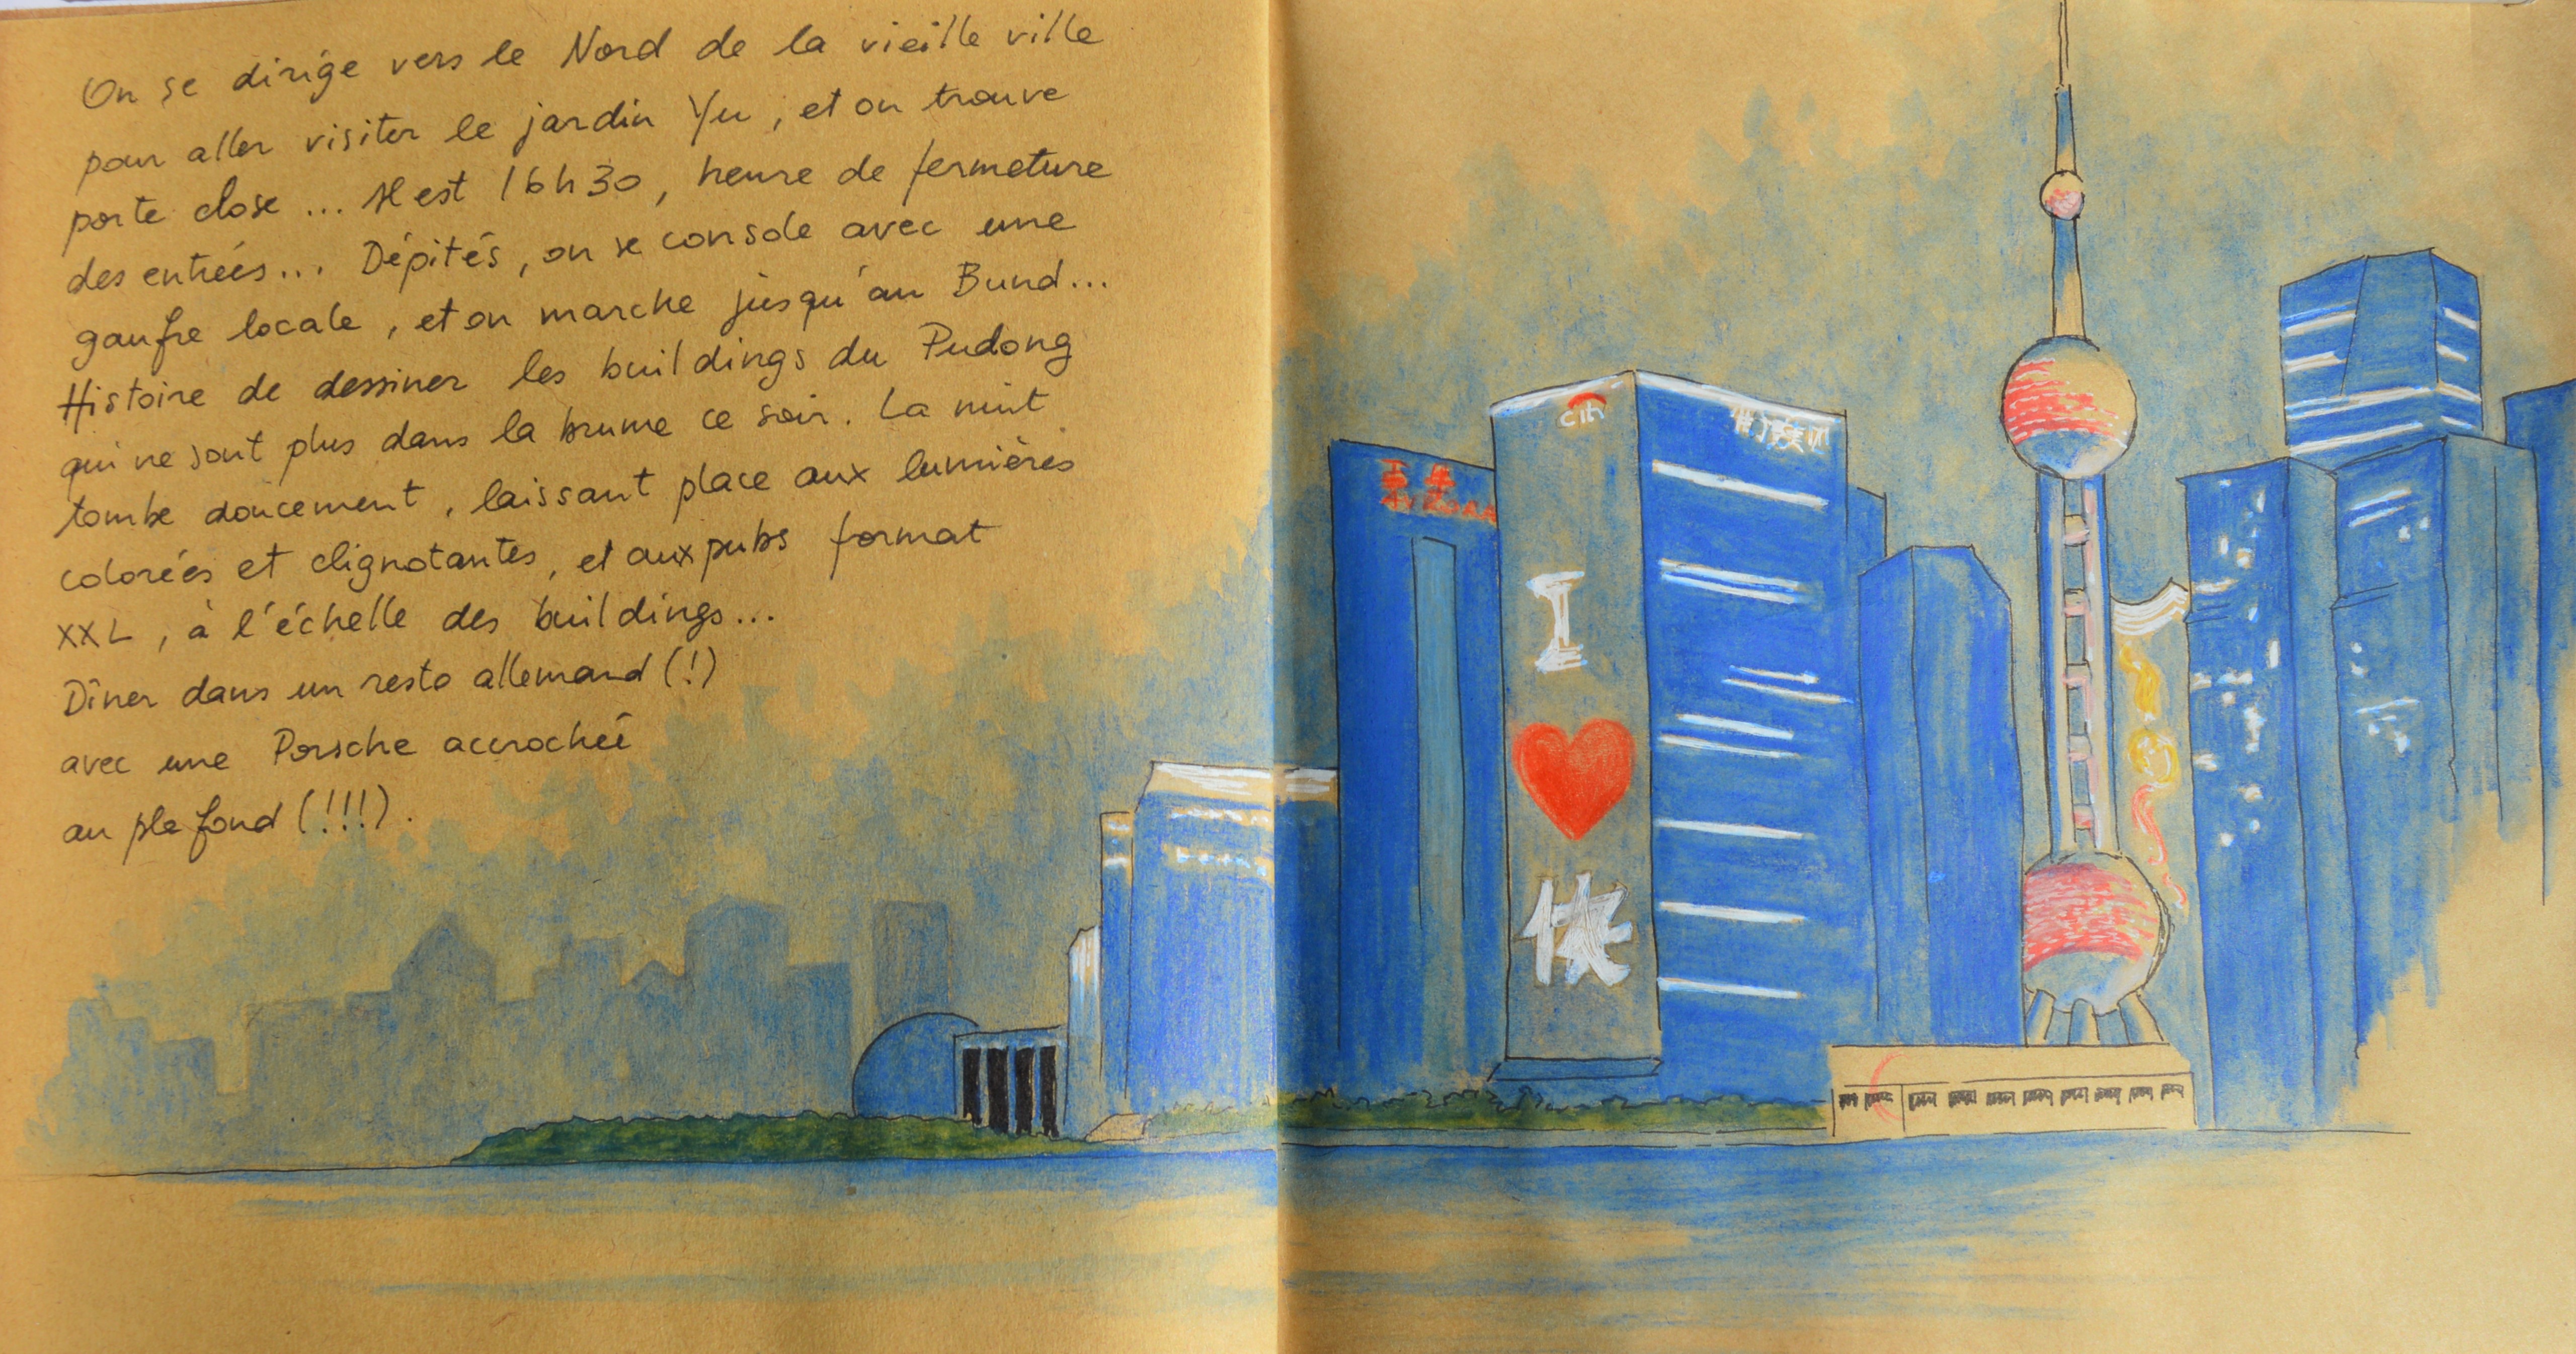 On se dirige vers le Nord de la vieille ville
pour aller visiter le jardin Yu, et on trouve
porte close... Il est 16h30, heure de fermeture
des entrées... Dépités, on se console avec une
gaufre locale, et on marche jusqu'au Bund...
Histoire de dessiner les buildings du Pudong
qui ne sont plus dans la brume ce soir. La nuit
tombe doucement, laissant place aux lumières
colorées et clignotantes, et aux pubs format
XXL, à l'échelle des buildings...
Dîner dans un resto allemand (!)
avec une Porsche accrochée
au plafond (!!!).
I